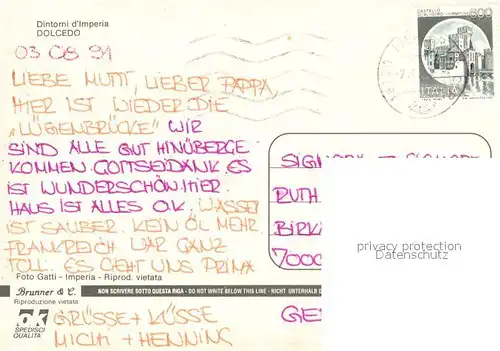 Dintorni d'Imperia
DOLCEDO
03 08 91
LIEBE MUTTI, LIEBER PAPPA,
HIER IST WIEDER DIE
„LÜGENBRÜCKE" WIR
SIND ALLE GUT HINÜBERGE
KOMMEN GOTTSEIDANK. ES
IST WUNDERSCHÖN. HIER.
HAUS IST ALLES O.K. WASSER
IST SAUBER. KEIN ÖL MEHR.
FRANKREICH WAR GANZ
TOLL. ES GEHT UNS PRIMA
Foto Gatti - Imperia - Riprod. vietata
Brunner & C.
Riproduzione vietata
NON SCRIVERE SOTTO QUESTA RIGA - DO NOT WRITE BELOW THIS LINE - NICHT UNTERHALB D
ok
SPEDISCI
QUALITÀ
GRÜSSE + KÜSSE
MICHI + HENNING
CASTELLO
600
ITALIA
RUTH
BIRK
7000
privacy protection
Datenschutz
GE